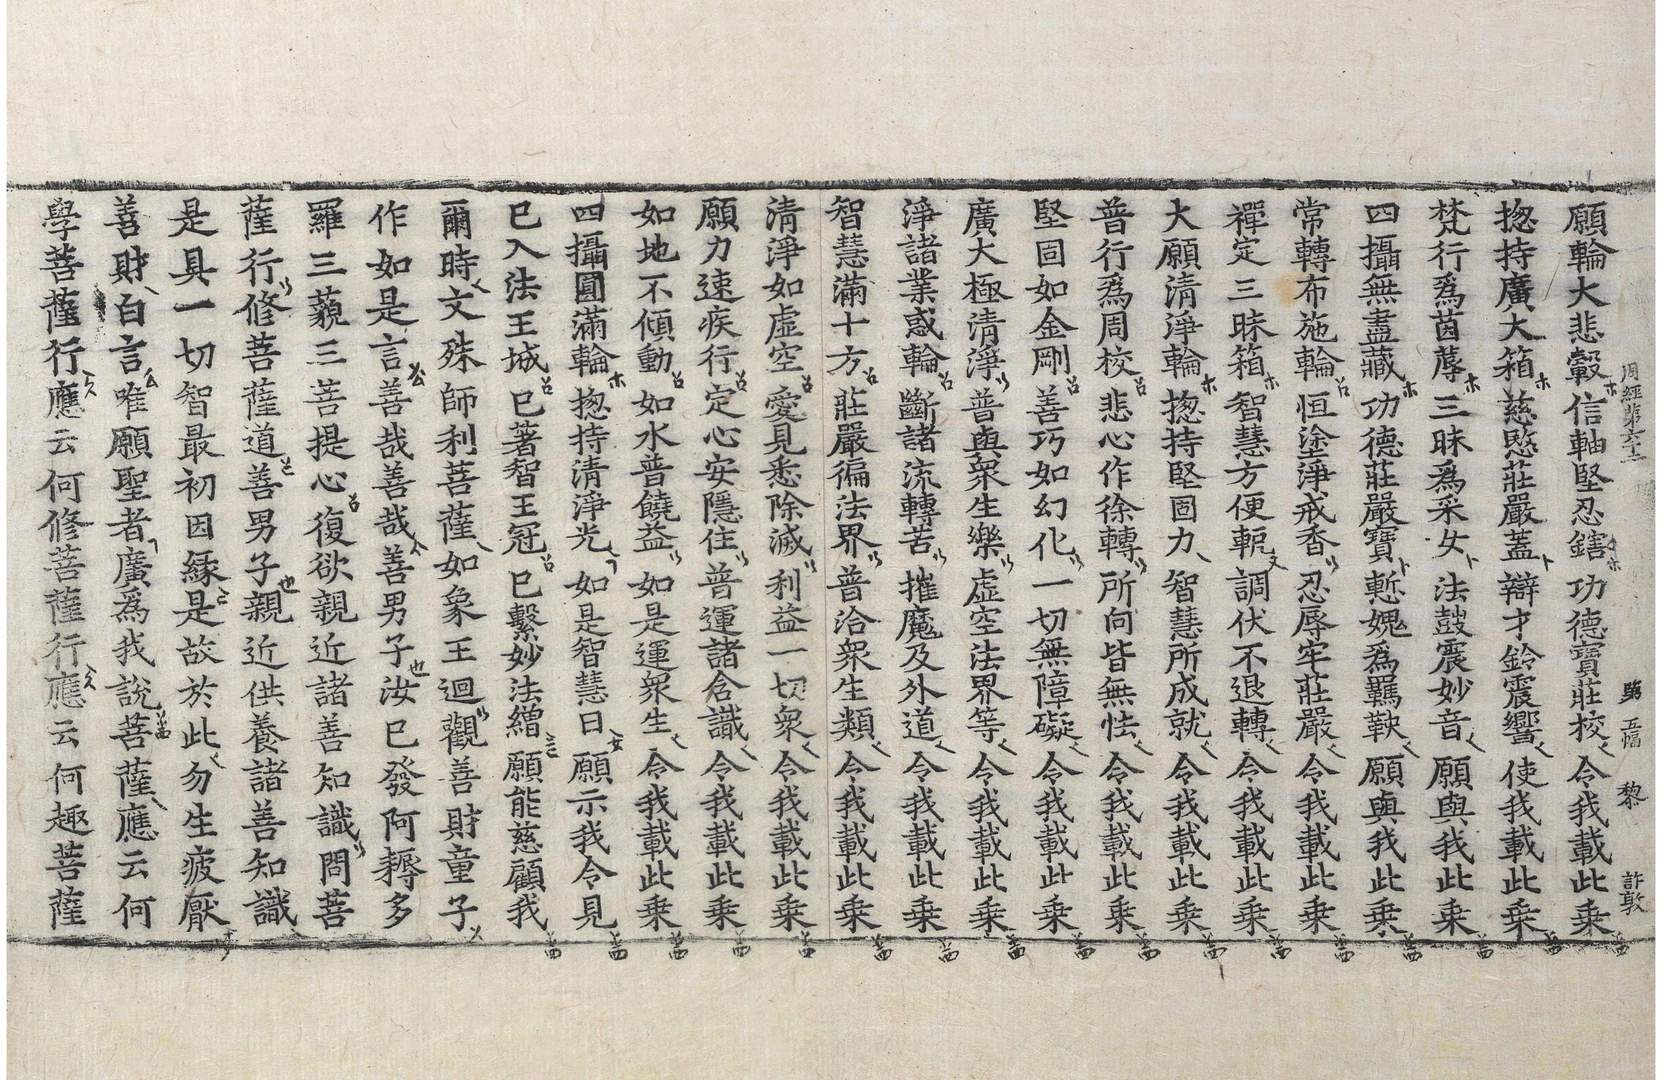 周經第六十二
第五幅 黎 許敦
願輪大悲轂信軸堅忍鎋功德寶莊校令我載此乗
揔持廣大箱慈愍莊嚴蓋辯才鈴震響使我載此乗
梵行爲茵蓐三昧爲采女法鼓震妙音願與我此乗
四攝無盡藏功德莊嚴寶慙愧爲羈鞅願與我此乗
常轉布施輪恒塗淨戒香忍辱牢莊嚴令我載此乗
禪定三昧箱智慧方便軛調伏不退轉令我載此乗
大願清淨輪揔持堅固力智慧所成就令我載此乗
普行爲周校悲心作徐轉所向皆無怯令我載此乗
堅固如金剛善巧如幻化一切無障礙令我載此乗
廣大極清淨普與衆生樂虛空法界等令我載此乗
淨諸業惑輪斷諸流轉苦摧魔及外道令我載此乗
智慧滿十方莊嚴徧法界普洽衆生類令我載此乗
清淨如虛空愛見悉除滅利益一切衆令我載此乗
願力速疾行定心安隱住普運諸含識令我載此乗
如地不傾動如水普饒益如是運衆生令我載此乗
四攝圓滿輪揔持清淨光如是智慧日願示我令見
已入法王城已著智王冠已繫妙法繒願能慈顧我
爾時文殊師利菩薩如象王迴觀善財童子
作如是言善哉善哉善男子汝已發阿耨多
羅三藐三菩提心復欲親近諸善知識問菩
薩行修菩薩道善男子親近供養諸善知識
是具一切智最初因緣是故於此勿生疲厭
善財白言唯願聖者廣爲我說菩薩應云何
學菩薩行應云何修菩薩行應云何趣菩薩